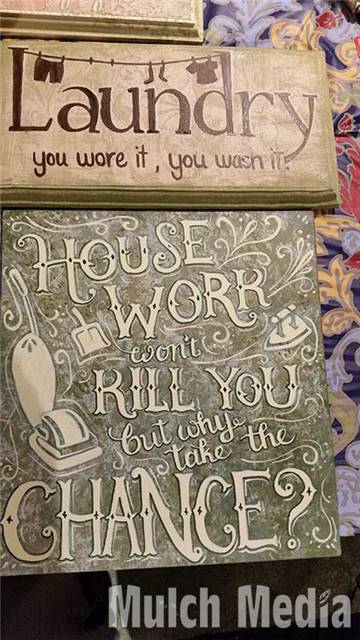 Laundry
you wore it, you wash it.
HOUSE
WORK
won't
KILL YOU
but why
take the
CHANCE?
Mulch Media